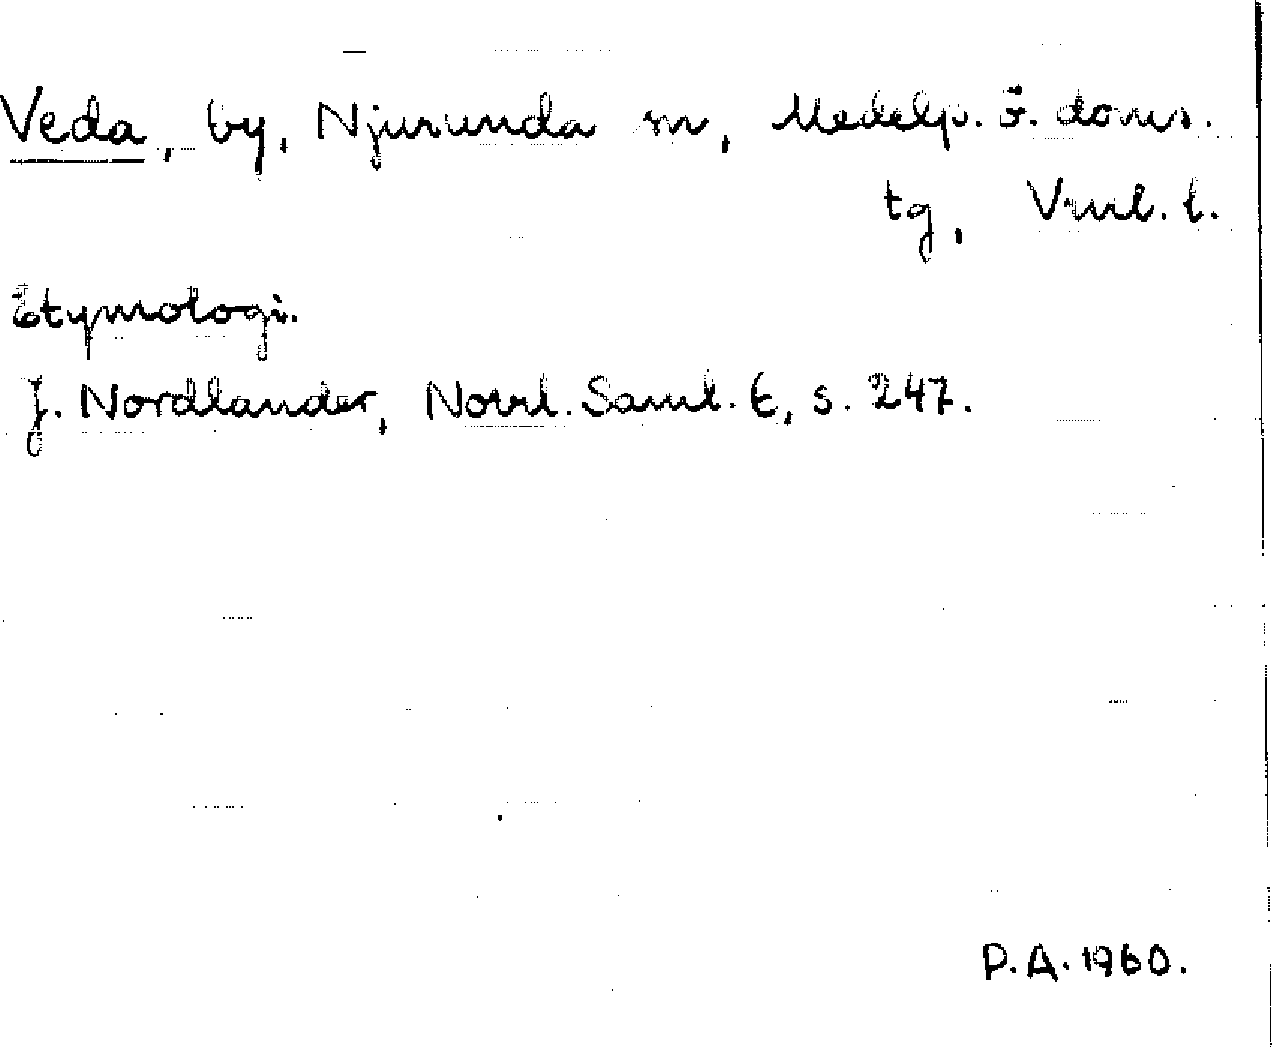 Veda, by, Njurunda sn, Medelp. ö. doms.
tg, Vnrl. l.
Etymologi.
J. Nordlander, Norrl. Saml. E, s. 247.
P.A. 1960.